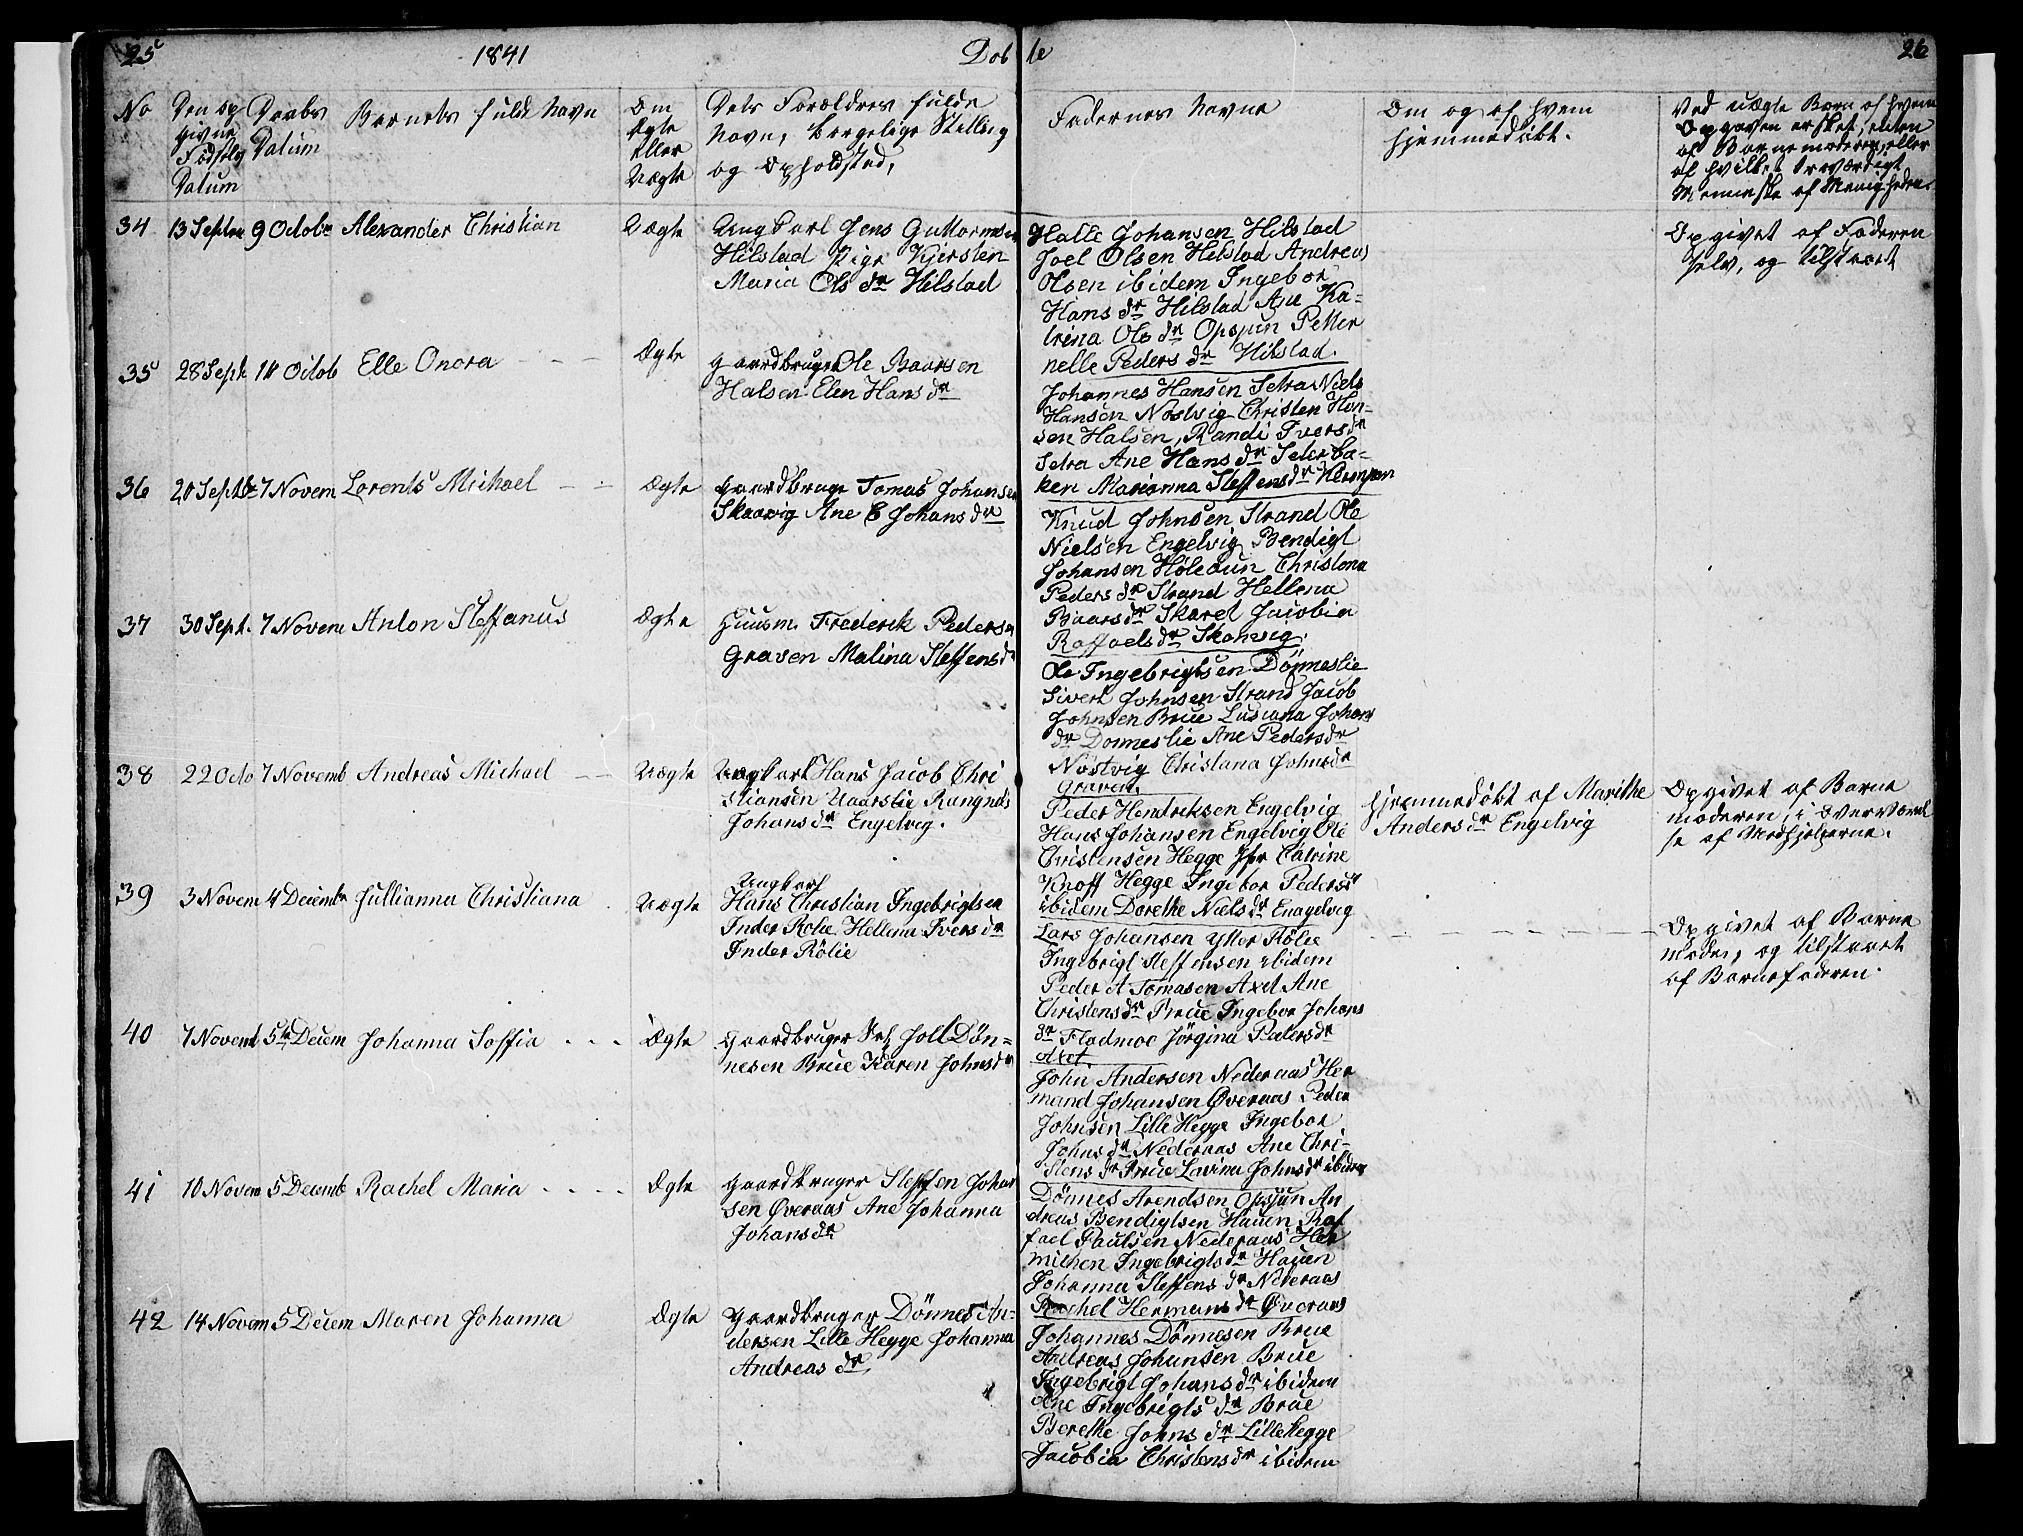 25
1841
Dobte
26
No
Den op
givne
Fødsels
Datum
Daabs
Datum
Barnets fulde Navn
Om
Ægte
eller
Uægte
Dets Forældres fulde
Navn, borgelige Stilling
og Opholdsted,
Fadernes Navne
Om og af hvem
hjemmedøbt.
Ved uægte Børn af hvem
Opgaven er sket, enten
af Barnemoderen, eller
af hvilket troværdigt
Menneske af Menigheden.
34 13 Septbr 9 Octobr Alexander Christian
Uægte
Ungkarl Jens Guttormsen
Hilstad Pige Kjersten
Maria Ols dr Hilstad
Halle Johansen Hilstad
Joel Olsen Hilstad Andreas
Olsen ibidem Ingebor
Hans dr Hilstad Ane Ka-
trina Ols dr Opsjun Petter
nelle Peders dr Hilstad.
Opgivet af Faderen
selv, og tilstaaet
35 28 Sept 14 Octob Elle Onora
Ægte
Gaardbruger Ole Baarsen
Halsen Elen Hans dr
Johannes Hansen Setra Niels
Hansen Nostvig Christen Han-
sen Halsen, Randi Ivers dr
Setra Ane Hans dr Seterba-
ken Marianna Steffens dr
36 20 Septb 7 Novem Lorents Michael
Ægte
Gaardbruge Tomas Johansen
Skaavig Ane E Johans dr
Knud Johnsen Strand Ole
Nielsen Engelvig Bendigt
Johansen Høleaun Christona
Peders dr Strand Hellena
Baars dr Skaret Jacobia
Raffaels dr Skaavig.
37 30 Sept. 7 Novem Anton Steffanus
Ægte
Huusm. Frederik Pedersen
Grasen Malina Steffens dr
Ole Ingebrigtsen Dønneslie
Sivert Johnsen Strand Jacob
Johnsen Brue Lusiana Johans
dr Donneslie Ane Peders dr
Nostvig Christana Johns dr
Graven.
38 22 Octo 7 Novemb Andreas Michael
Uægte
Ungkarl Hans Jacob Chri
stiansen Uaarslie Rangnas
Johans dr Engelvig.
Peder Hendriksen Engelvig
Hans Johansen Engelvig Ole
Christensen Hegge Jfr Catrine
Knoff Hegge Ingebor Peders dr
ibidem Dorethe Niels dr Enagelvig
Hjemmedøbt af Marithe
Anders dr Engelvig
Opgivet af Barne
moderen, i Overværel
se af Medhjelperne.
39 3 Novem 4 Decembr Jullianna Christiana
Uægte
Ungkarl
Hans Christian Ingebrigtsen
Inder Rølie Hellena Ivers dr
Inder Rölie
Lars Johansen Ytter Rølie
Ingebrigt Steffensen ibidem
Peder A Tomasen Axet Ane
Christens dr Brue Ingebor Johans
dr Fladmoe Jørgina Peders dr
Axet
Opgivet af Barne
moder, og tilstaaet
af Barnefaderen.
40 7 Novemb 5te Decem Johanna Soffia
Ægte
Gaardbruger Joll Dön-
nesen Brue Karen Johns dr
John Andersen Nederaas Her
mand Johansen Øveraas Peder
Johnsen Lille Hegge Ingebor
Johns dr Nederaas Ane Chri-
stens dr Brue Lavina Johns dr ibidem
41 10 Novem 5 Decemb Rachel Maria
Ægte
Gaardbruger Steffen Johan
sen Øveraas Ane Johanna
Johans dr
Dönnes Arendsen Opsjun An
dreas Bendigtsen Hauen Raf
fael Paulsen Nederaas Hen
michen Ingebrigts dr Hauen
Johanna Steffens dr Nederaas
Rachel Hermans dr Øveraas
42 14 Novem 5 Decem Maren Johanna
Ægte
Gaardbruger Dönnes An-
dersen Lille Hegge Johanna
Andreas dr
Johannes Dönnesen Brue
Andreas Johansen Brue
Ingebrigt Johans dr ibidem
Ane Ingebrigts dr Brue
Berethe Johns dr Lillehegge
Jacobia Christens dr ibidem